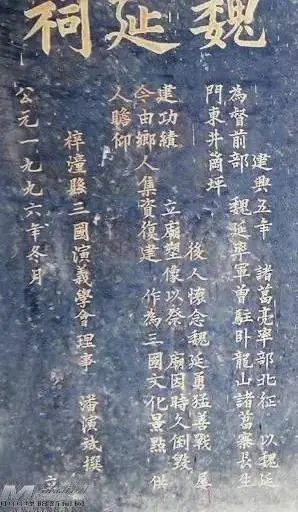 魏延祠
建興五年 諸葛亮率部北征 以魏延
為督前部 魏延率軍曾駐卧龍山諸葛寨長生
門東井崗坪
後人懷念魏延勇猛善戰 屢
建功績 立廟塑像以祭 廟因時久倒毀
今由鄉人集資復建 作為三國文化景點 供
人瞻仰
梓潼縣三國演義學會理事 潘演 撰
公元一九九六年冬月 立